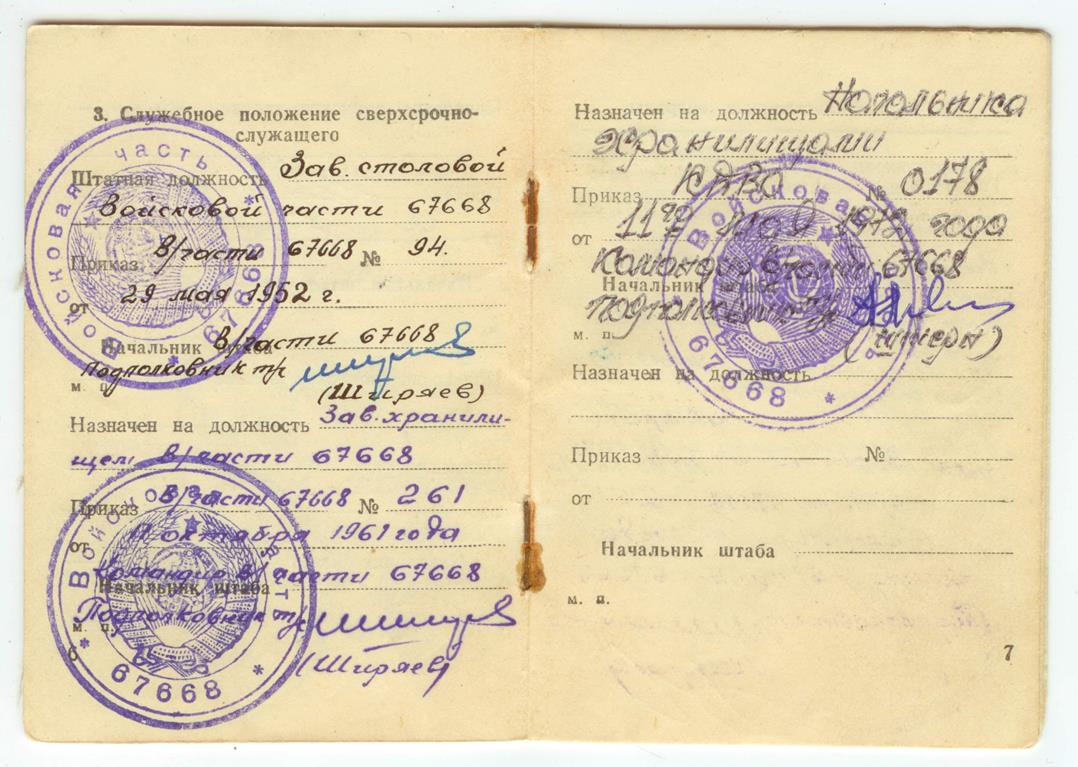 3. Служебное положение сверхсрочно-
служащего
Штатная должность Зав. столовой
Войсковой части 67668
Приказ в/части 67668 № 94.
от 29 мая 1952 г.
в/части 67668
Начальник штаба
Подполковник т/с
м. п.
(Ширяев)
Назначен на должность Зав. хранили-
щем в/части 67668
Приказ в/части 67668 № 261
от октября 1961 года
Командир в/части 67668
Начальник штаба
Подполковник т/с
м. п.
(Ширяев)
6
Войсковая часть
* 67668 *
Войсковая часть
* 67668 *
Назначен на должность Начальника
хранилищами
Приказ КДВО № 0178
от года
Командир в/части 67668
Начальник штаба
Подполковник
м. п.
Назначен на должность
Приказ №
от
Начальник штаба
м. п.
7
Войсковая
67668 *